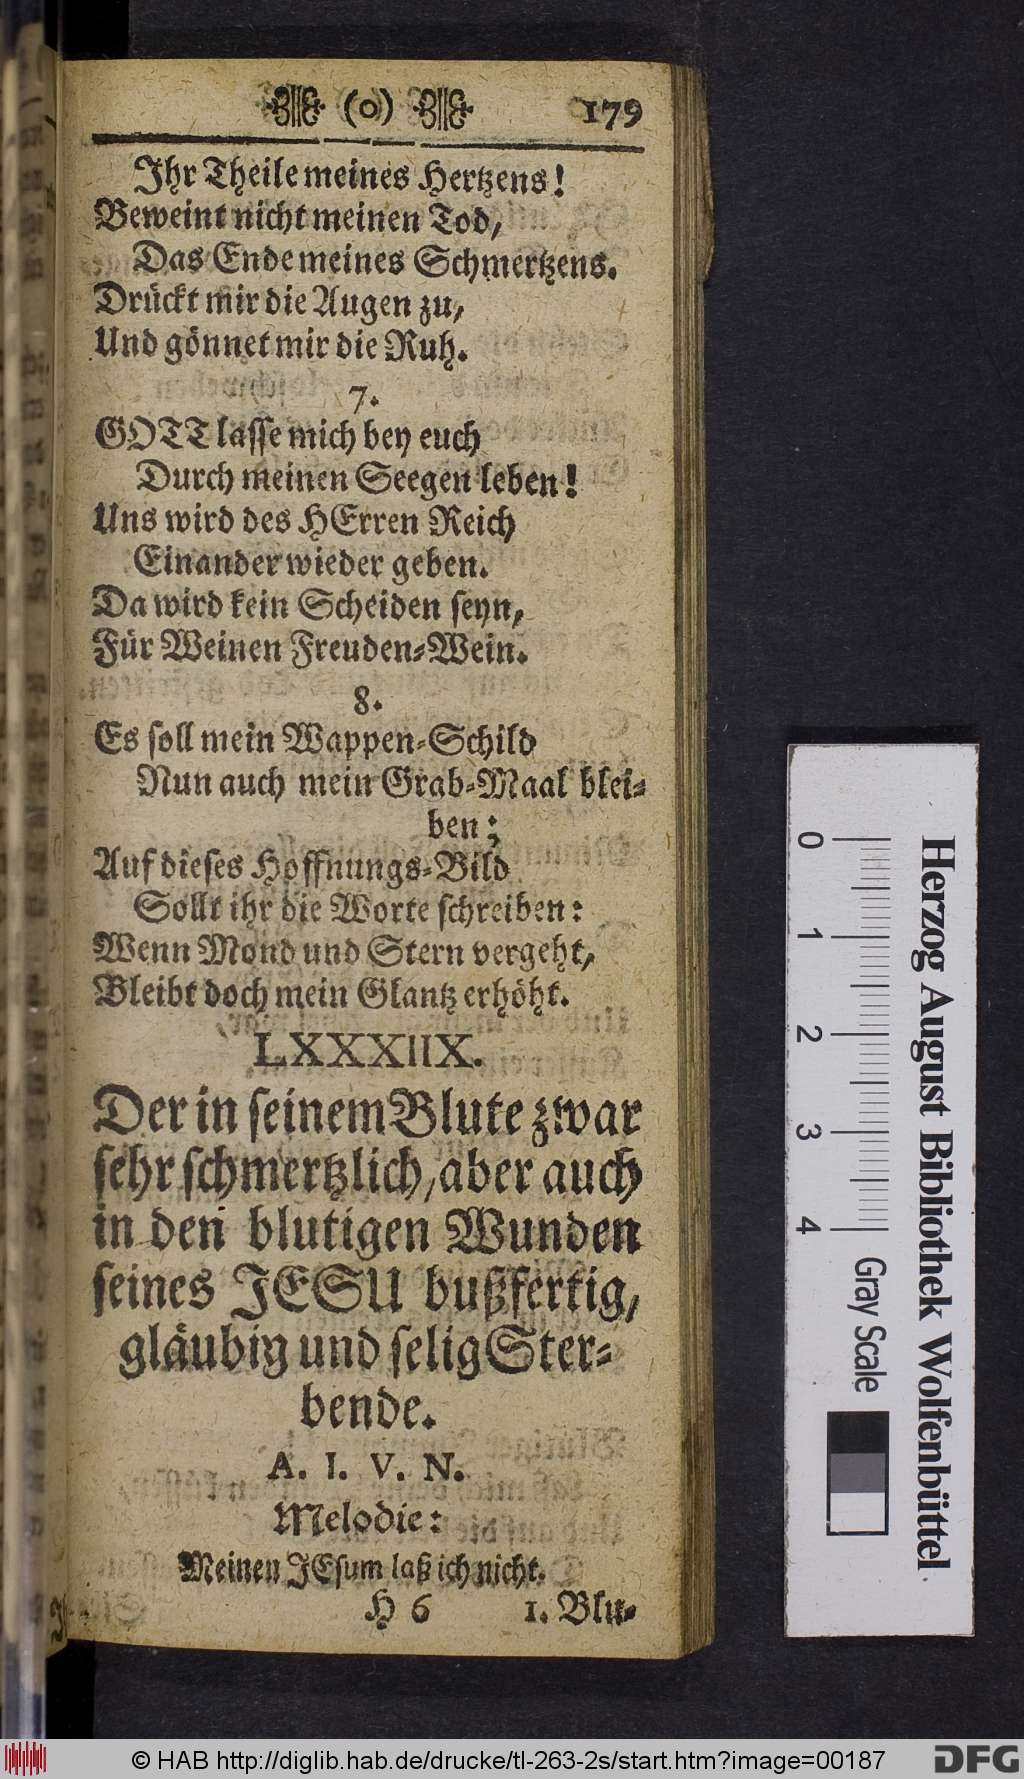 (o) 179
Ihr Theile meines Hertzens!
Beweint nicht meinen Tod,
Das Ende meines Schmertzens.
Drückt mir die Augen zu,
Und gönnet mir die Ruh.
7.
GOTT lasse mich bey euch
Durch meinen Seegen leben!
Uns wird des HErren Reich
Einander wieder geben.
Da wird kein Scheiden seyn,
Für Weinen Freuden-Wein.
8.
Es soll mein Wappen-Schild
Nun auch mein Grab-Maal blei-
ben;
Auf dieses Hoffnungs-Bild
Sollt ihr die Worte schreiben:
Wenn Mond und Stern vergeht,
Bleibt doch mein Glantz erhöht.
LXXXIIX.
Der in seinem Blute zwar
sehr schmertzlich, aber auch
in den blutigen Wunden
seines JESU bußfertig,
gläubig und selig Ster-
bende.
A. I. V. N.
Melodie:
Meinen JEsum laß ich nicht.
H 6 1. Blu-
0 1 2 3 4 Gray Scale
Herzog August Bibliothek Wolfenbüttel
© HAB http://diglib.hab.de/drucke/tl-263-2s/start.htm?image=00187
DFG